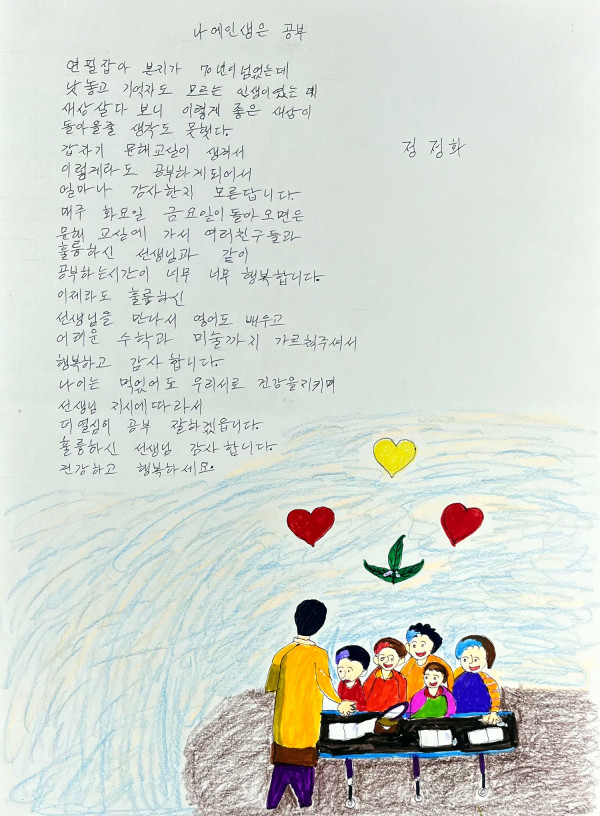 나에인생은 공부
연필잡아 본지가 70년이넘었는데
낫놓고 기역자도 모르는 인생이였는데
새상살다 보니 이렇게 좋은 새상이
돌아올줄 생각도 못했다.
정정화
갑자기 문해교실이 생겨서
이렇게라도 공부하게되어서
얼마나 감사한지 모른답니다.
매주 화요일 금요일이돌아오면은
문해 교실에 가서 여러친구들과
훌륭하신 선생님과 같이
공부하는시간이 너무 너무 행복합니다.
이제라도 훌륭하신
선생님을 만나서 영어도 배우고
어려운 수학과 미술까지 가르쳐주셔서
행복하고 감사합니다.
나이는 먹었어도 우리서로 건강을지키며
선생님 지시에따라서
더열심히 공부 잘하겠읍니다.
훌륭하신 선생님 감사합니다.
건강하고 행복하세요.